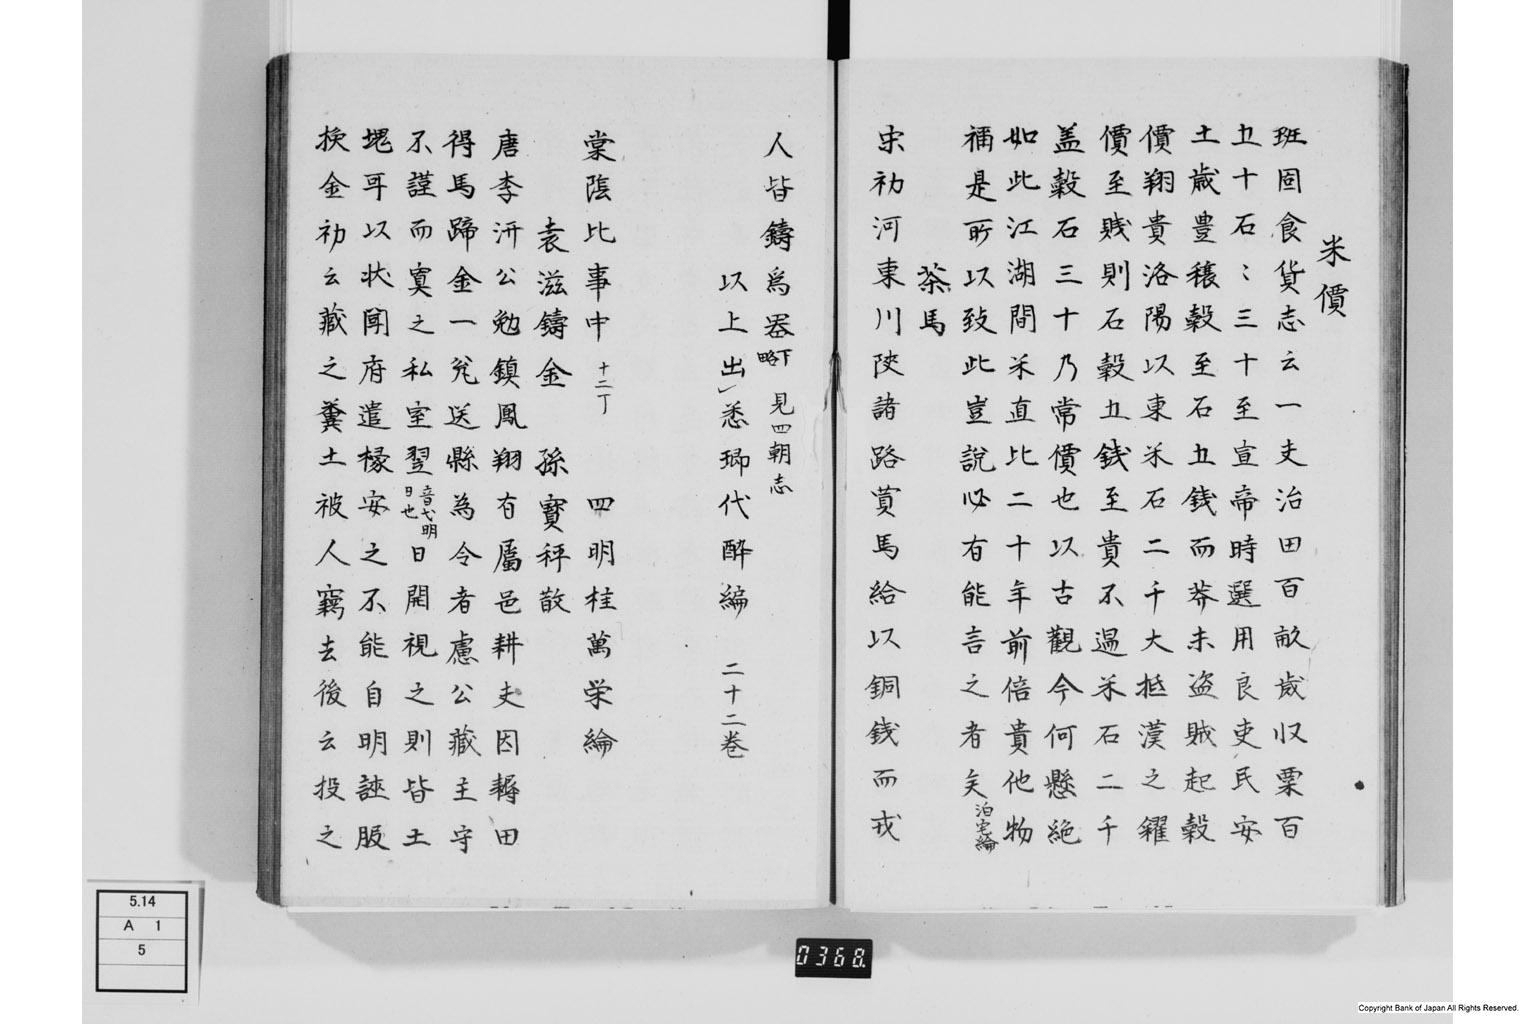 米價
班固食貨志云一夫治田百畝歳収粟百
五十石〻三十至宣帝時選用良吏民安
土歳豊穣穀至石五銭而莽末盗賊起穀
價翔貴洛陽以東米石二千大抵漢之糴
價至賎則石穀五銭至貴不過米石二千
盖穀石三十乃常價也以古觀今何懸絶
如此江湖間米直比二十年前倍貴他物
稱是所以致此豈説必有能言之者矣 泊宅編
茶馬
宋初河東川陜諸路買馬給以銅銭而戎
人皆鑄爲器 下略 見四朝志
以上出悉瑯代酔編 二十二巻
棠陰比事中 十二丁 四明桂萬栄編
袁滋鑄金 孫寳秤散
唐李汧公勉鎮鳳翔有属邑耕夫因耨田
得馬蹄金一瓮送縣為令者慮公藏主守
不謹而寘之私室翌 音弋明日也 日開視之則皆土
塊耳以状聞府遣掾安之不能自明誣服
換金初云藏之糞土被人竊去後云投之
5.14
A 1
5
0368
Copyright Bank of Japan All Rights Reserved.